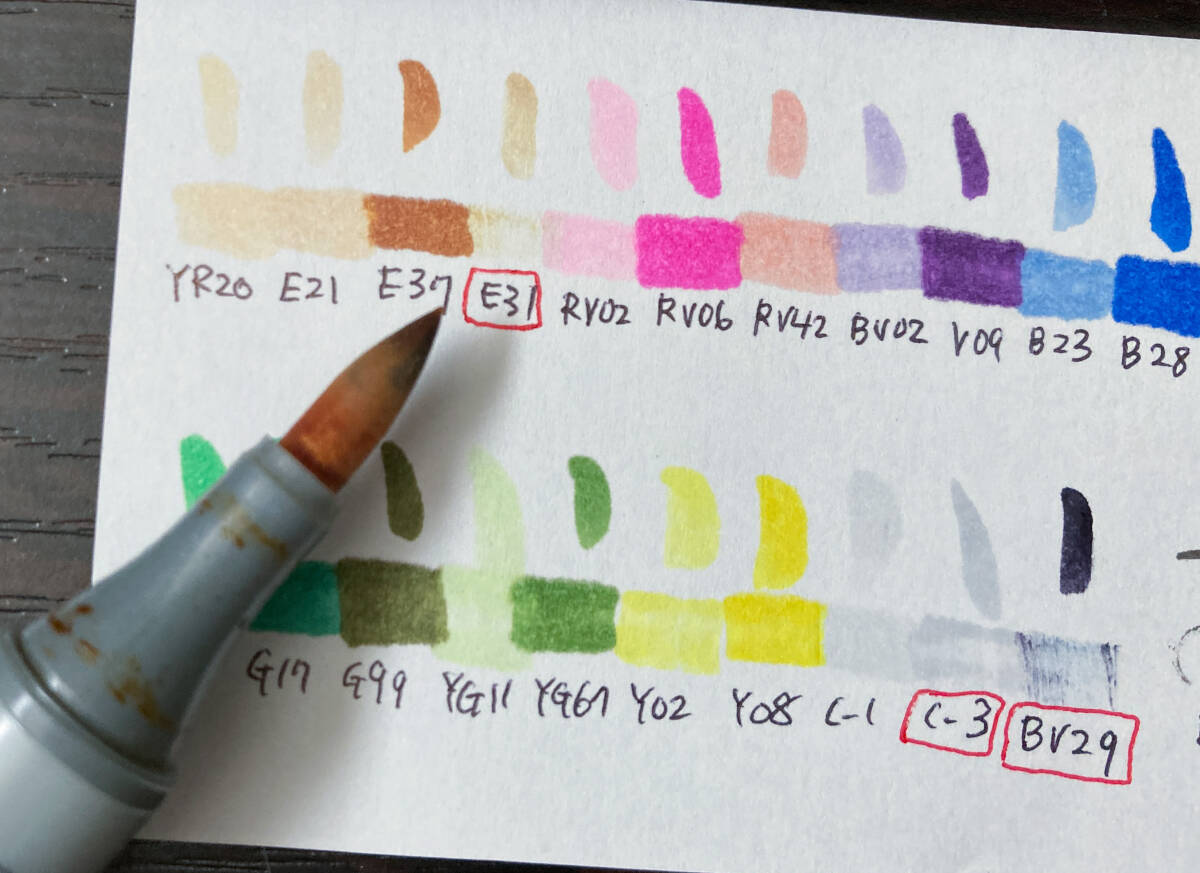 YR20 E21 E37 E31 RV02 RV06 RV42 BV02 V09 B23 B28
G17 G99 YG11 YG67 Y02 Y08 C-1 C-3 BV29